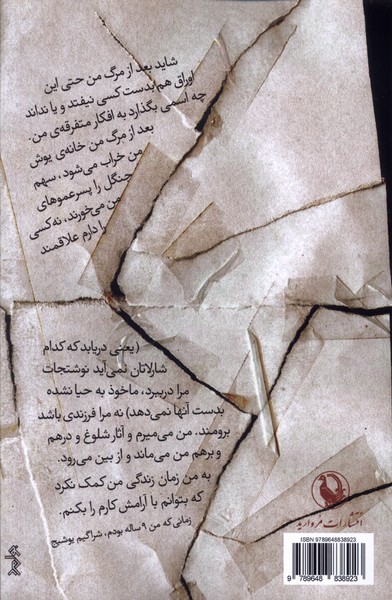 شاید بعد از مرگ من حتی این
اوراق هم بدست کسی نیفتد و یا نداند
چه اسمی بگذارد به افکار متفرقه‌ی من.
بعد از مرگ من خانه‌ی یوش
من خراب می‌شود، سهم
جنگل را پسرعموهای
من می‌خورند، نه کسی
را دارم علاقمند
(یعنی دریابد که کدام
شارلاتان نمی‌آید نوشتجات
مرا درببرد، ماخوذ به حیا نشده
بدست آنها نمی‌دهد) نه مرا فرزندی باشد
برومند، من می‌میرم و آثار شلوغ و درهم
و برهم من می‌ماند و از بین می‌رود.
به من زمان زندگی من کمک نکرد
که بتوانم با آرامش کارم را بکنم.
زمانی که من ۹ ساله بودم، شراگیم یوشیج
انتشارات مروارید
ISBN 9789648838923
9 789648 838923